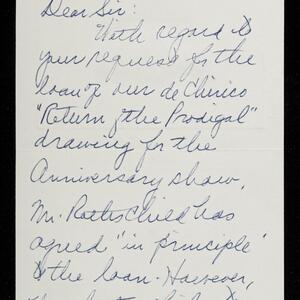 Dear Sir:
With regard to
your request for the
loan of our de Chirico
"Return of the Prodigal"
drawing for the
Anniversary show,
Mr. Rothschild has
agreed "in principle"
to the loan. However,